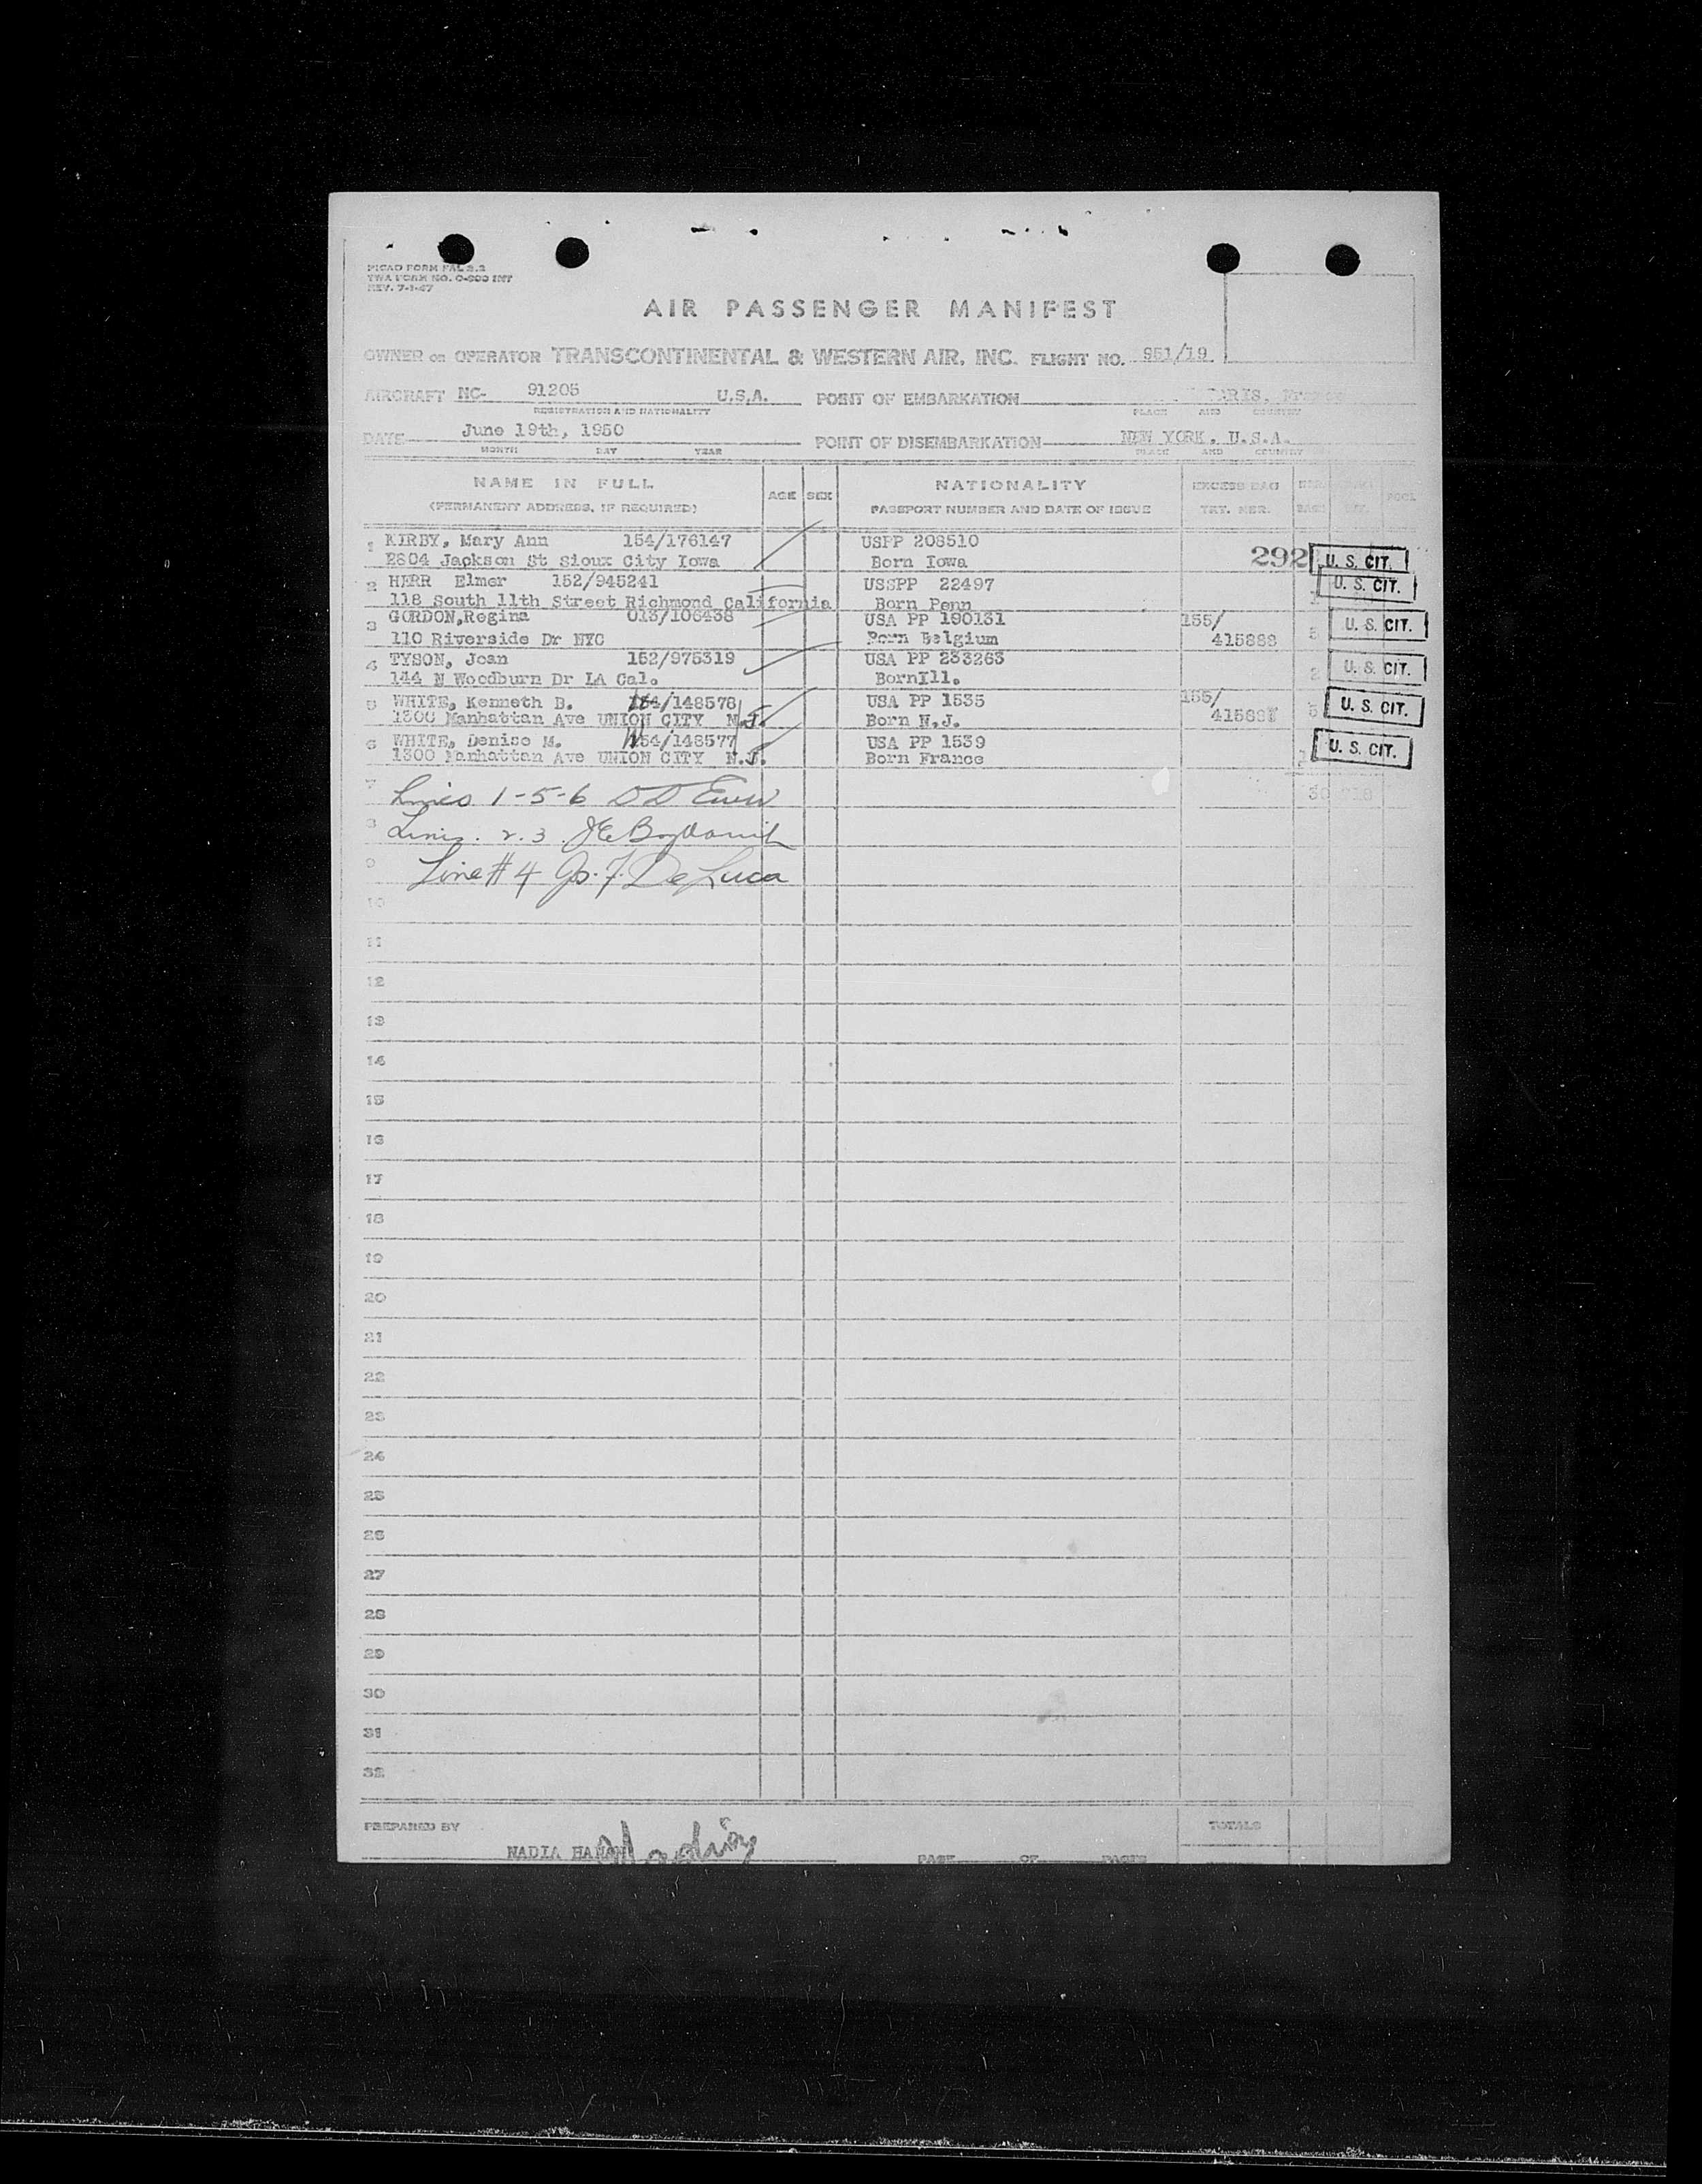 PICAO FORM FAL 2.2
TWA FORM NO. O-900 INT
REV. 7-1-47
AIR PASSENGER MANIFEST
OWNER OR OPERATOR TRANSCONTINENTAL & WESTERN AIR, INC. FLIGHT NO. 951/19
AIRCRAFT NC- 91205 U.S.A. POINT OF EMBARKATION PARIS, France
REGISTRATION AND NATIONALITY PLACE AND COUNTRY
DATE June 19th, 1950 POINT OF DISEMBARKATION NEW YORK, U.S.A.
MONTH DAY YEAR PLACE AND COUNTRY
NAME IN FULL AGE SEX NATIONALITY EXCESS BAG
(PERMANENT ADDRESS, IF REQUIRED) PASSPORT NUMBER AND DATE OF ISSUE TKT. NBR.
1 KIRBY, Mary Ann 154/176147 USPP 208510
2804 Jackson St Sioux City Iowa Born Iowa 292 U. S. CIT.
2 HERR Elmer 152/945241 USSPP 22497 U. S. CIT.
118 South 11th Street Richmond California Born Penn
3 GORDON,Regina 013/106438 USA PP 190131 155/ U. S. CIT.
110 Riverside Dr NYC Born Belgium 415888
4 TYSON, Joan 152/975319 USA PP 233263 2 U. S. CIT.
144 N Woodburn Dr LA Cal. BornIll.
5 WHITE, Kenneth B. 154/148578 USA PP 1535 155/ U. S. CIT.
1300 Manhattan Ave UNION CITY N.J. Born N.J. 41588
6 WHITE, Denise M. 154/148577 USA PP 1539 U. S. CIT.
1300 Manhattan Ave UNION CITY N.J. Born France
7 Lines 1-5-6
8 Lines. 2. 3
9 Line # 4 Jos. F. De Luca
10
11
12
13
14
15
16
17
18
19
20
21
22
23
24
25
26
27
28
29
30
31
32
PREPARED BY TOTALS
NADIA PAGE OF PAGES